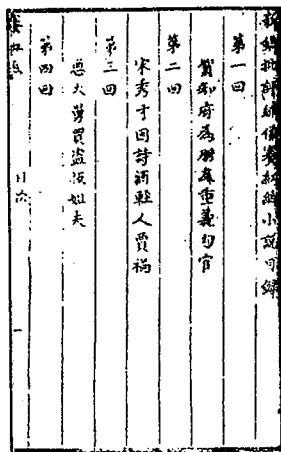 新編批評繡像賽紅絲小說目錄
第一回
賀知府為朋友重義句官
第二回
宋秀才因詩酒輕人賈禍
第三回
惡大舅買盜扳姐夫
第四回
賽紅絲
目次
一